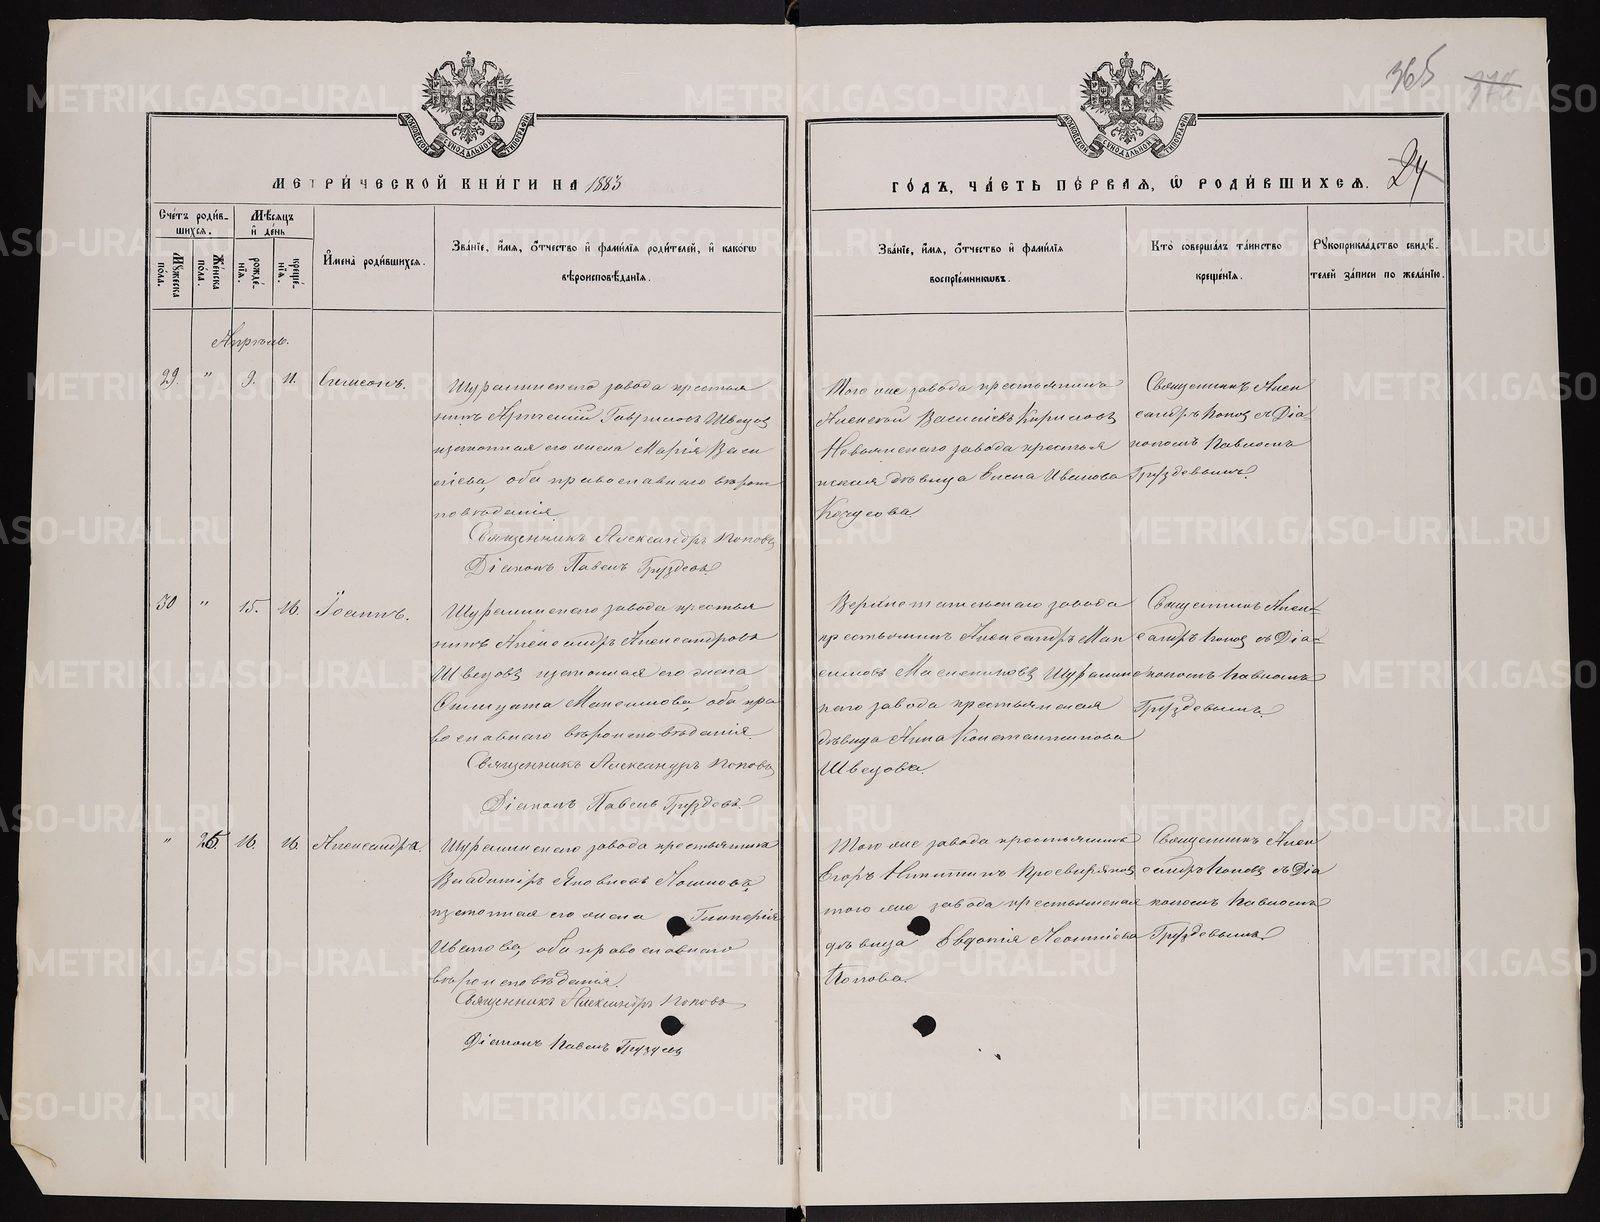 365
24
МЕТРИ́ЧЕСКОЙ КНИ́ГИ НА 1883
ГО́ДЪ, ЧА́СТЬ ПЕ́РВАѦ, Ѿ РОДИ́ВШИХСѦ.
Сче́тъ роди́в-
шихсѧ.
Мꙋ́жеска пола.
Же́нска пола.
Мѣ́сѧцъ
и҆ день
рожде́-
нїѧ.
креще́-
нїѧ.
И҆мена̀ роди́вшихсѧ.
Зва́нїе, и҆́мѧ, ѻ҆́тчество и҆ фами́лїѧ роди́телей, и҆ како́гѡ
вѣроисповѣ́данїѧ.
Зва́нїе, и҆́мѧ, ѻ҆́тчество и҆ фами́лїѧ
воспрїе́мникѡвъ.
Кто̀ соверша́лъ та́инство
креще́нїѧ.
Рꙋкоприкла́дство свидѣ́-
телей за́писи по жела́нїю.
Апрѣль.
29. " 9. 11. Симеонъ.
Шуралинскаго завода крестья
нинъ Артемій Гавриловъ Швецов
и законная его жена Марія Васи
лiева, оба православнаго вѣроис
повѣданія.
Священникъ Александръ Поповъ
Діаконъ Павелъ Груздевъ.
Того же завода крестьянинъ
Алексѣй Васильевъ Кириловъ
Невьянскаго завода крестья
нская дѣвица Елена Иванова
Священникъ Алек
сандръ Попов съ Діа
кономъ Павломъ
Груздевымъ.
30 " 15. 16. Іоаннъ.
Шуралинскаго завода крестья
нинъ Александръ Александровъ
Швецовъ и законная его жена
Максимова, оба пра
вославнаго вѣроисповѣданія.
Священникъ Александръ Поповъ
Діаконъ Павелъ Груздевъ.
Верхнетагильскаго завода
крестьянинъ Александръ Мак
симовъ Масленниковъ Шуралинс
каго завода крестьянская
дѣвица Анна Константинова
Швецова.
Священникъ Алек-
сандръ Попов съ Діа-
кономъ Павломъ
Груздевымъ.
" 26. 16. 16. Александра.
Шуралинскаго завода крестьянинъ
Владиміръ Яковлевъ
и законная его жена Гликерія
Иванова, оба православнаго
вѣроисповѣданія.
Священникъ Александръ Поповъ
Діаконъ Павелъ Груздев
Того же завода крестьянинъ
Егоръ Никитинъ Просвиряков
того же завода крестьянская
дѣвица Евдокія Леонтіева
Попова.
Священникъ Алек
сандръ Попов съ Діа
кономъ Павломъ
Груздевымъ.
METRIKI.GASO-URAL.RU